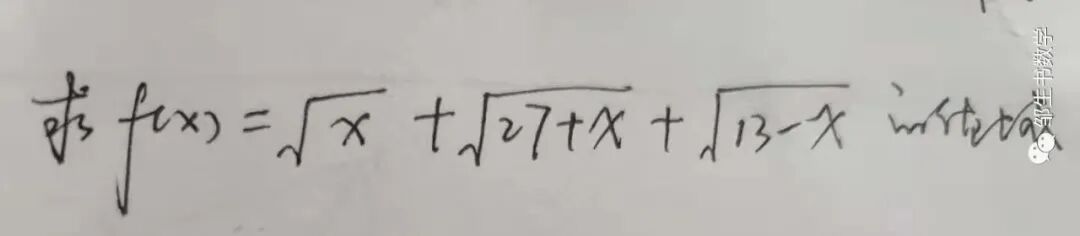 求 f(x) = √x + √27+x + √13-x
邹生书数学